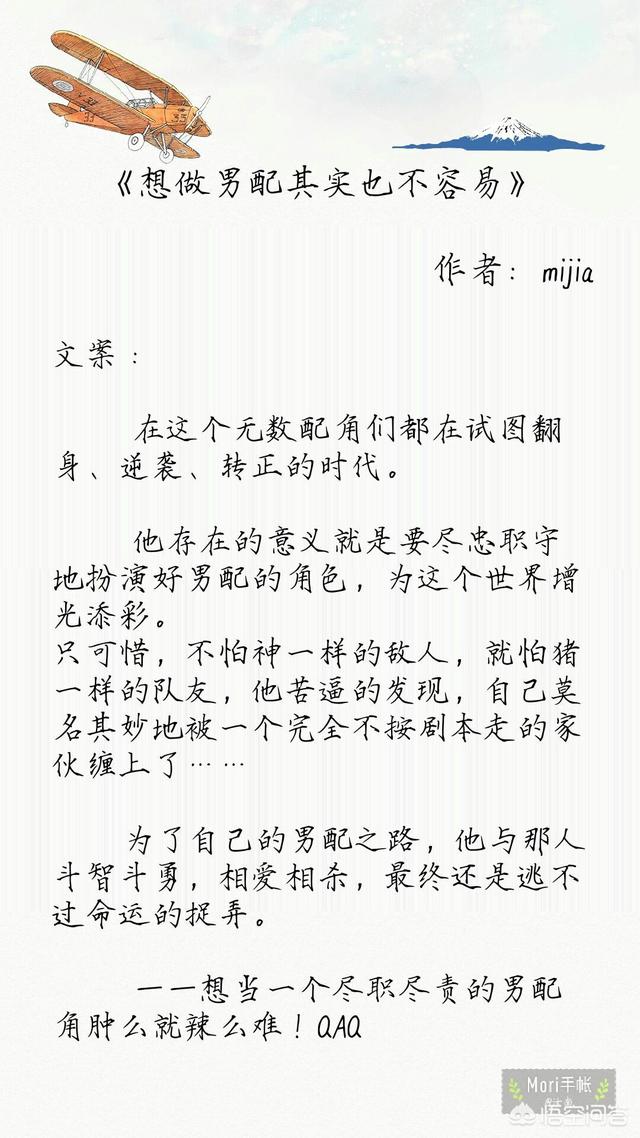 《想做男配其实也不容易》
作者：mijia
文案：
在这个无数配角们都在试图翻
身、逆袭、转正的时代。
他存在的意义就是要尽忠职守
地扮演好男配的角色，为这个世界增
光添彩。
只可惜，不怕神一样的敌人，就怕猪
一样的队友，他苦逼的发现，自己莫
名其妙地被一个完全不按剧本走的家
伙缠上了……
为了自己的男配之路，他与那人
斗智斗勇，相爱相杀，最终还是逃不
过命运的捉弄。
——想当一个尽职尽责的男配
角肿么就辣么难！QAQ
Mori手帐
悟空问答